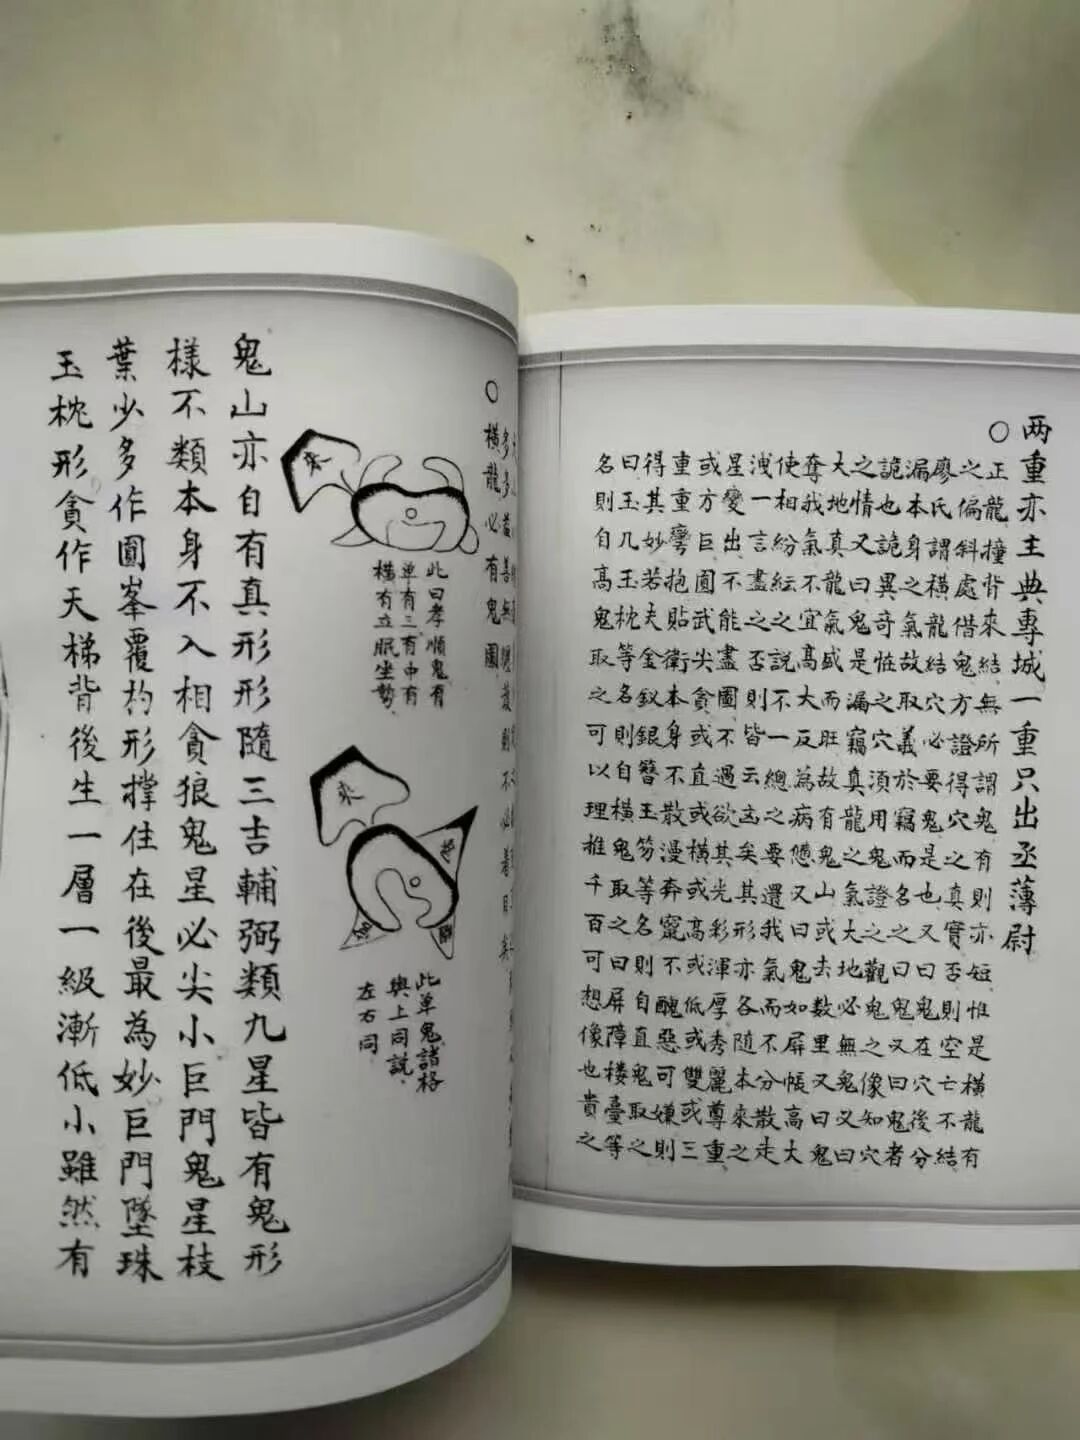 两重亦主典專城一重只出丞薄尉
○正龍撞背來結無所謂鬼有則亦短惟是橫龍有
之偏斜處借鬼方證得穴之真實否則空亡不結
廖氏謂橫龍結穴必要鬼是也又曰鬼在穴後分
漏本身之氣故取義於竊而名之曰鬼又曰鬼者
詭也詭異奇恠之穴須用鬼證之觀鬼之像知穴
之情又曰鬼是漏竊真龍之氣大地必無鬼又曰
大地真龍氣盛而旺故有鬼山或去數里又曰鬼
奪我氣不宜高大反為病憊又曰鬼如屏帳高大
使相紛紜之說不一總之要還我氣而不分散走
洩一言盡之否則皆云凶矣其形亦各隨本來之
星變出不能盡圖不過欲其光彩渾厚秀麗尊重
或方巨圓武尖貪或直或橫或高或低或雙或三
重重彎抱貼衛本身不散漫奔竄不醜惡可嫌則
得其妙若夫金釵銀簪玉笏等名則自直鬼取之
曰玉几玉枕等名則自橫鬼取之曰屏障楼臺等
名則自高鬼取之可以理推千百可想像也貴之
○橫龍必有鬼圖
此曰孝順鬼有
单有三有中有
橫有立眠坐勢
來
此单鬼諸格
與上同說
左右同
來
鬼山亦自有真形形隨三吉輔弼類九星皆有鬼形
樣不類本身不入相貪狼鬼星必尖小巨門鬼星枝
葉少多作圓峯覆杓形撑住在後最為妙巨門墜珠
玉枕形貪作天梯背後生一層一級漸低小雖然有